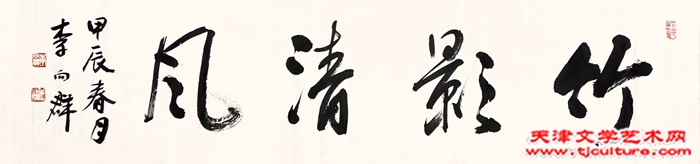 竹影清风
甲辰春月
李向群
天津文学艺术网
www.tjculture.com